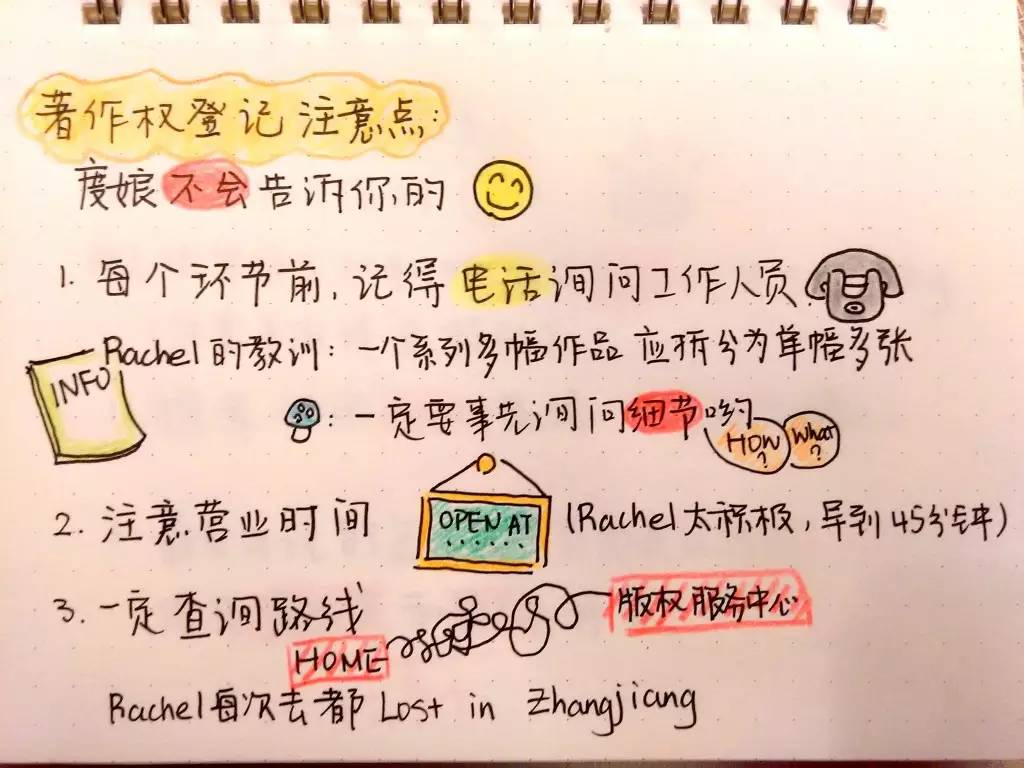 著作权登记 注意点:
度娘不会告诉你的
1. 每个环节前,记得电话询问工作人员
Rachel的教训: 一个系列多幅作品 应拆分为单幅多张
INFO
: 一定要事先询问细节哟
HOW?
What?
2. 注意营业时间
OPEN AT
(Rachel太积极,早到45分钟)
3. 一定查询路线
HOME
版权服务中心
Rachel每次去都 Lost in Zhangjiang